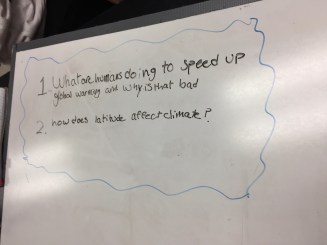 1. What are humans doing to speed up
global warming and why is that bad
2. how does latitude affect climate?